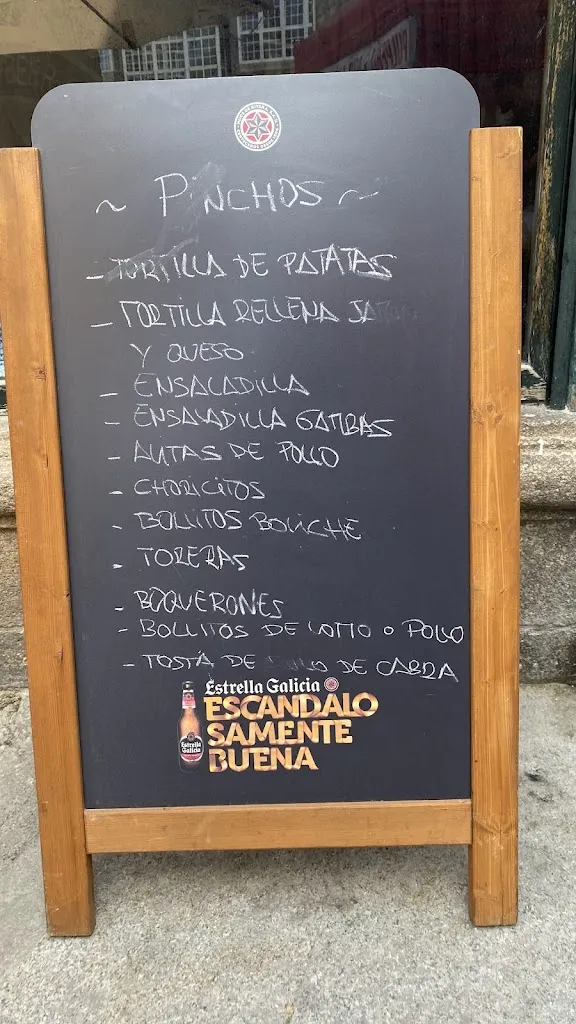 ~ PINCHOS ~
- TORTILLA DE PATATAS
- TORTILLA RELLENA
Y QUESO
- ENSALADILLA
- ENSALADILLA GAMBAS
- ALITAS DE POLLO
- CHORICITOS
- BOLLITOS BOLICHE
- TORERAS
- BOQUERONES
- BOLLITOS DE LOMO O POLLO
- TOSTA DE DE CABRA
Estrella Galicia
ESCANDALO
SAMENTE
BUENA